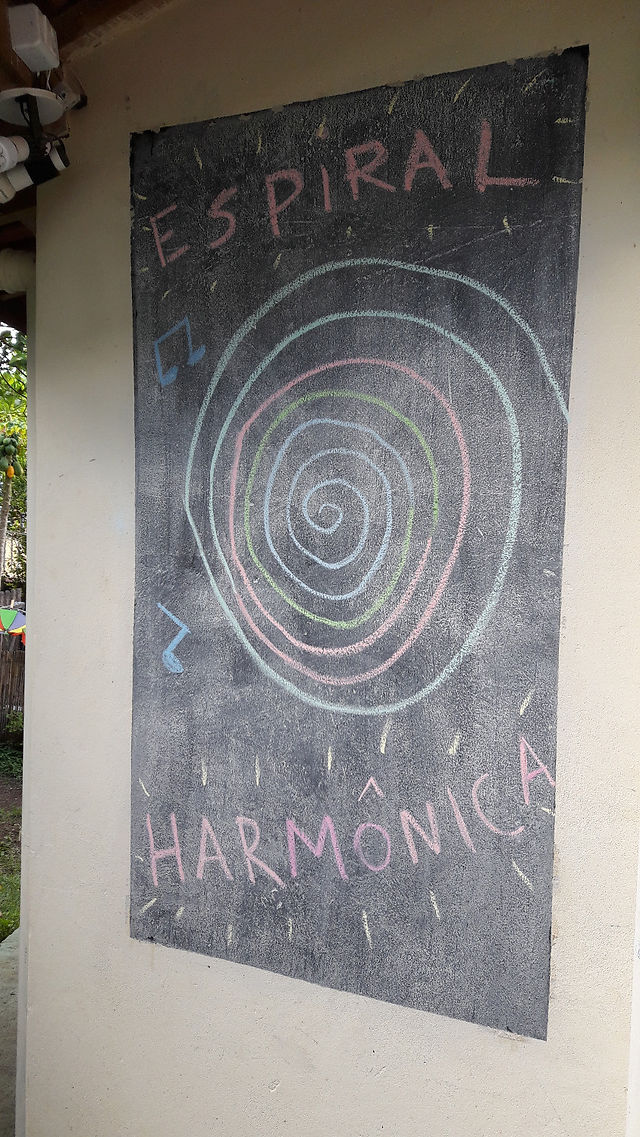 ESPIRAL
HARMÔNICA